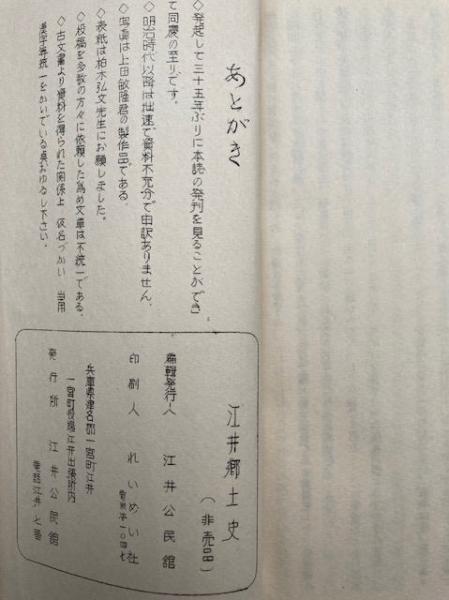 あとがき
◇発起して三十五年ぶりに本読の発刊を見ることができ
て同慶の至りです。
◇明治時代以降は拙速で資料不充分で申訳ありません。
◇写真は上田敏隆君の製作品である。
◇表紙は柏木弘文先生にお願しました。
◇投稿を多数の方々に依頼した為め文章は不統一である。
◇古文書より資料を得られた関係上 仮名づかい 当用
漢字等統一をかいでいる点おゆるし下さい。
江井郷土史
(非売品)
編輯発行人 江井公民館
印刷人 れいめい社
兵庫県津名郡一宮町江井
一宮町役場江井出張所内
発行所 江井公民館
電話江井七番